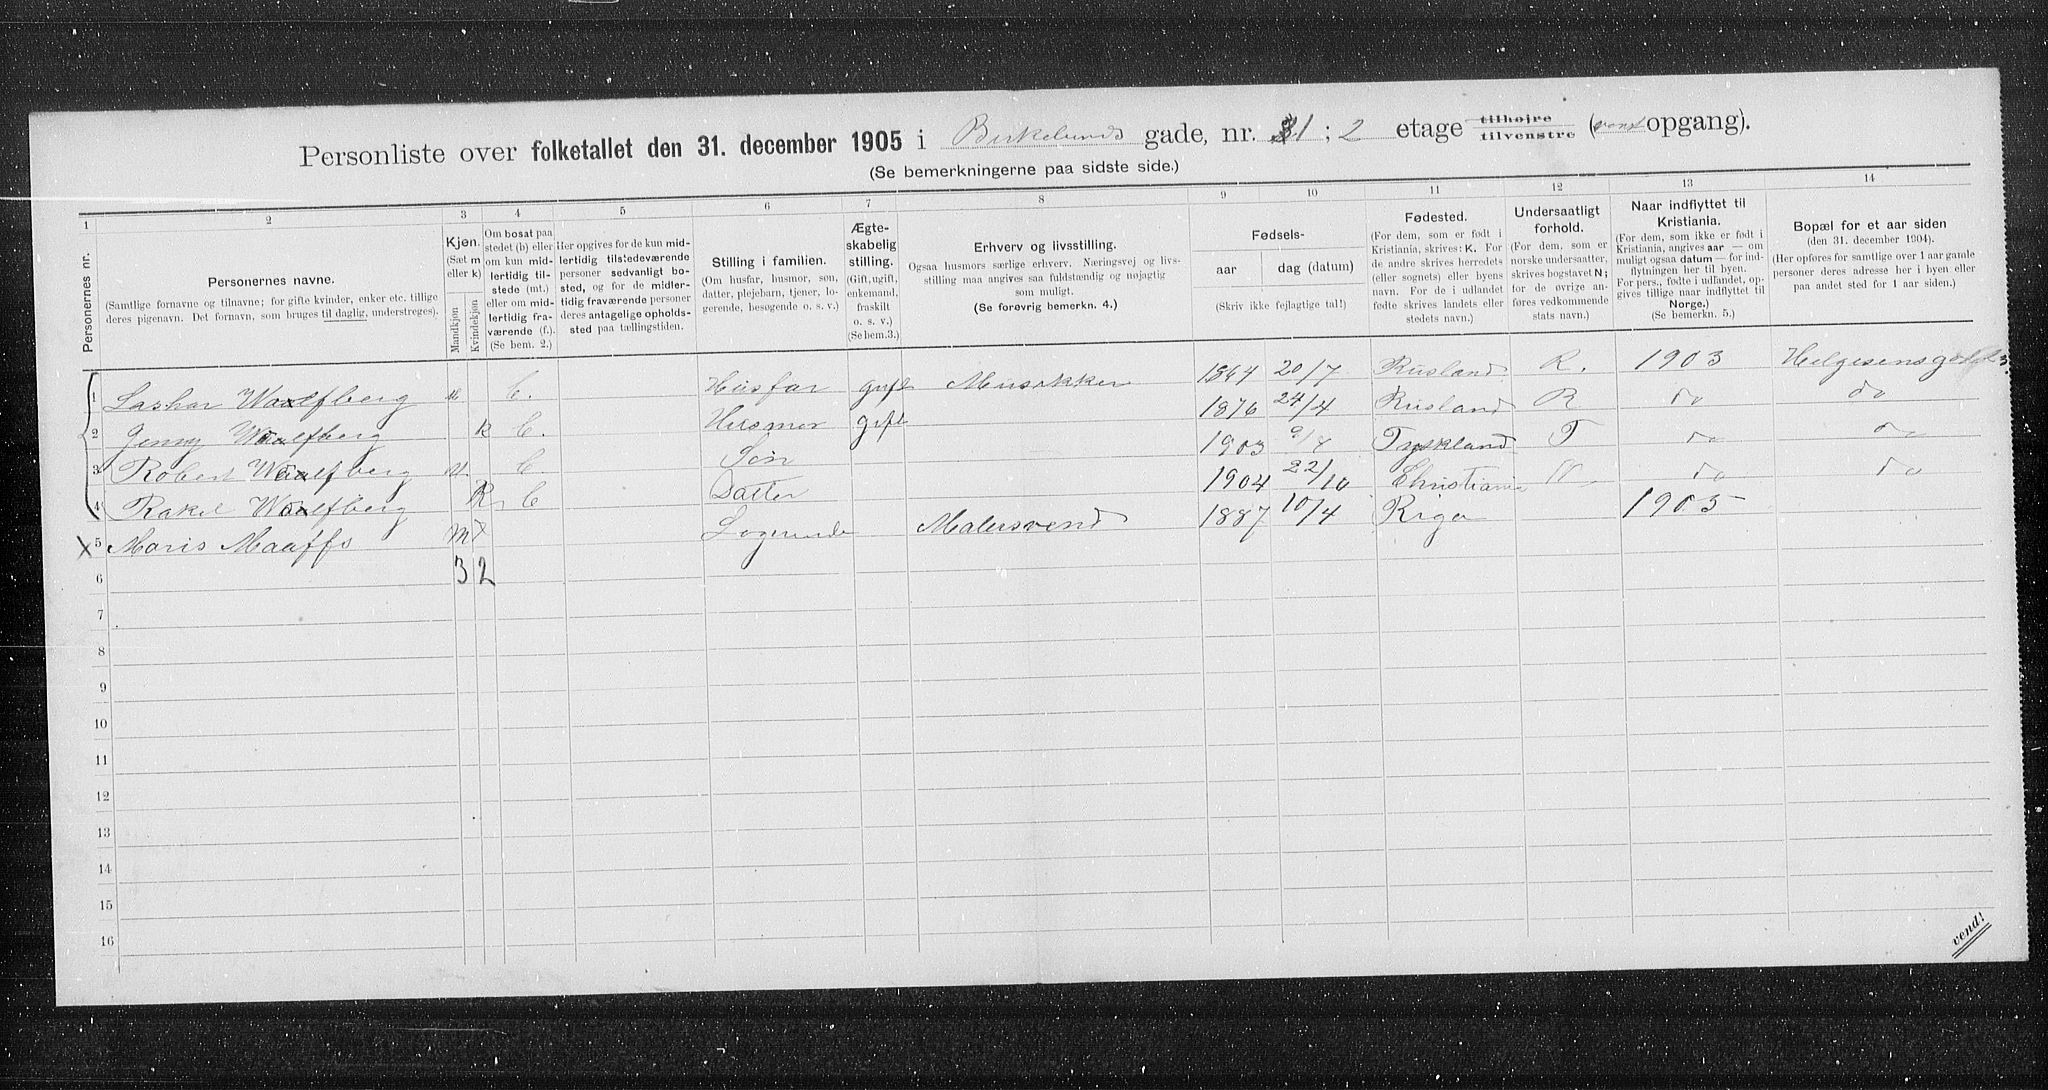 Personliste over folketallet den 31. december 1905 i Birkelunds gade, nr. 31 ; 2 etage tilhøjre tilvenstre ( opgang).
(Se bemerkningerne paa sidste side.)
1 2 3 4 5 6 7 8 9 10 11 12 13 14
Personernes nr.
Personernes navne.
(Samtlige fornavne og tilnavne; for gifte kvinder, enker etc. tillige
deres pigenavn. Det fornavn, som bruges til daglig, understreges).
Kjøn.
(Sæt m
eller k)
Mandkjøn
Kvindekjøn
Om bosat paa
stedet (b) eller
om kun mid-
lertidig til-
stede (mt.)
eller om mid-
lertidig fra-
værende (f.).
(Se bem. 2.)
Her opgives for de kun mid-
lertidig tilstedeværende
personer sedvanligt bo-
sted, og for de midler-
tidig fraværende personer
deres antagelige opholds-
sted paa tællingstiden.
Stilling i familien.
(Om husfar, husmor, søn,
datter, plejebarn, tjener, lo-
gerende, besøgende o. s. v.)
Ægte-
skabelig
stilling.
(Gift, ugift,
enkemand,
fraskilt
o. s. v.)
(Se bem.3.)
Erhverv og livsstilling.
Ogsaa husmors særlige erhverv. Næringsvej og livs-
stilling maa angives saa fuldstændig og nøjagtig
som muligt.
(Se forøvrig bemerkn. 4.)
Fødsels-
aar
dag (datum)
(Skriv ikke fejlagtige tal!)
Fødested.
(For dem, som er født i
Kristiania, skrives: K. For
de andre skrives herredets
(eller sognets) eller byens
navn. For de i udlandet
fødte skrives landets eller
stedets navn.)
Undersaatligt
forhold.
(For dem, som er
norske undersaatter,
skrives bogstavet N;
for de øvrige an-
føres vedkommende
stats navn.)
Naar indflyttet til
Kristiania.
(For dem, som ikke er født i
Kristiania, angives aar — om
muligt ogsaa datum — for ind-
flytningen her til byen.
For pers., fødte i udlandet, op-
gives tillige naar indflyttet til
Norge.)
(Se bemerkn. 5.)
Bopæl for et aar siden
(den 31. december 1904).
(Her opføres for samtlige over 1 aar gamle
personer deres adresse her i byen eller
paa andet sted for 1 aar siden.)
1 Lashar Woolfberg m b. Husfar gift Musikker 1864 20/7 Rusland R. 1903
2 Jenny Woolfberg k b. Husmor gift 1876 24/4 Rusland R do do
3 Robert Woolfberg m b. Søn 1903 9/8 Tyskland T do do
4 Rakel Woolfberg k b Datter 1904 22/10 Christiania N do do
X 5 Moris Maaffs m x Logerende Malersvend 1887 10/4 Riga 1905
6 3 2
7
8
9
10
11
12
13
14
15
16
vend!